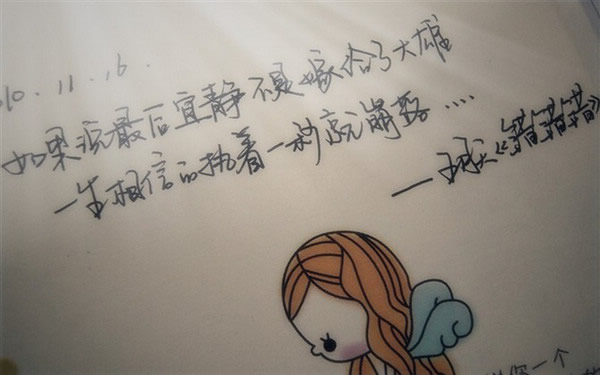 10.11.16.
如果说最后宜静不是嫁给了大雄
一生相信的执着一秒就崩落....
——《错错错》
你一个